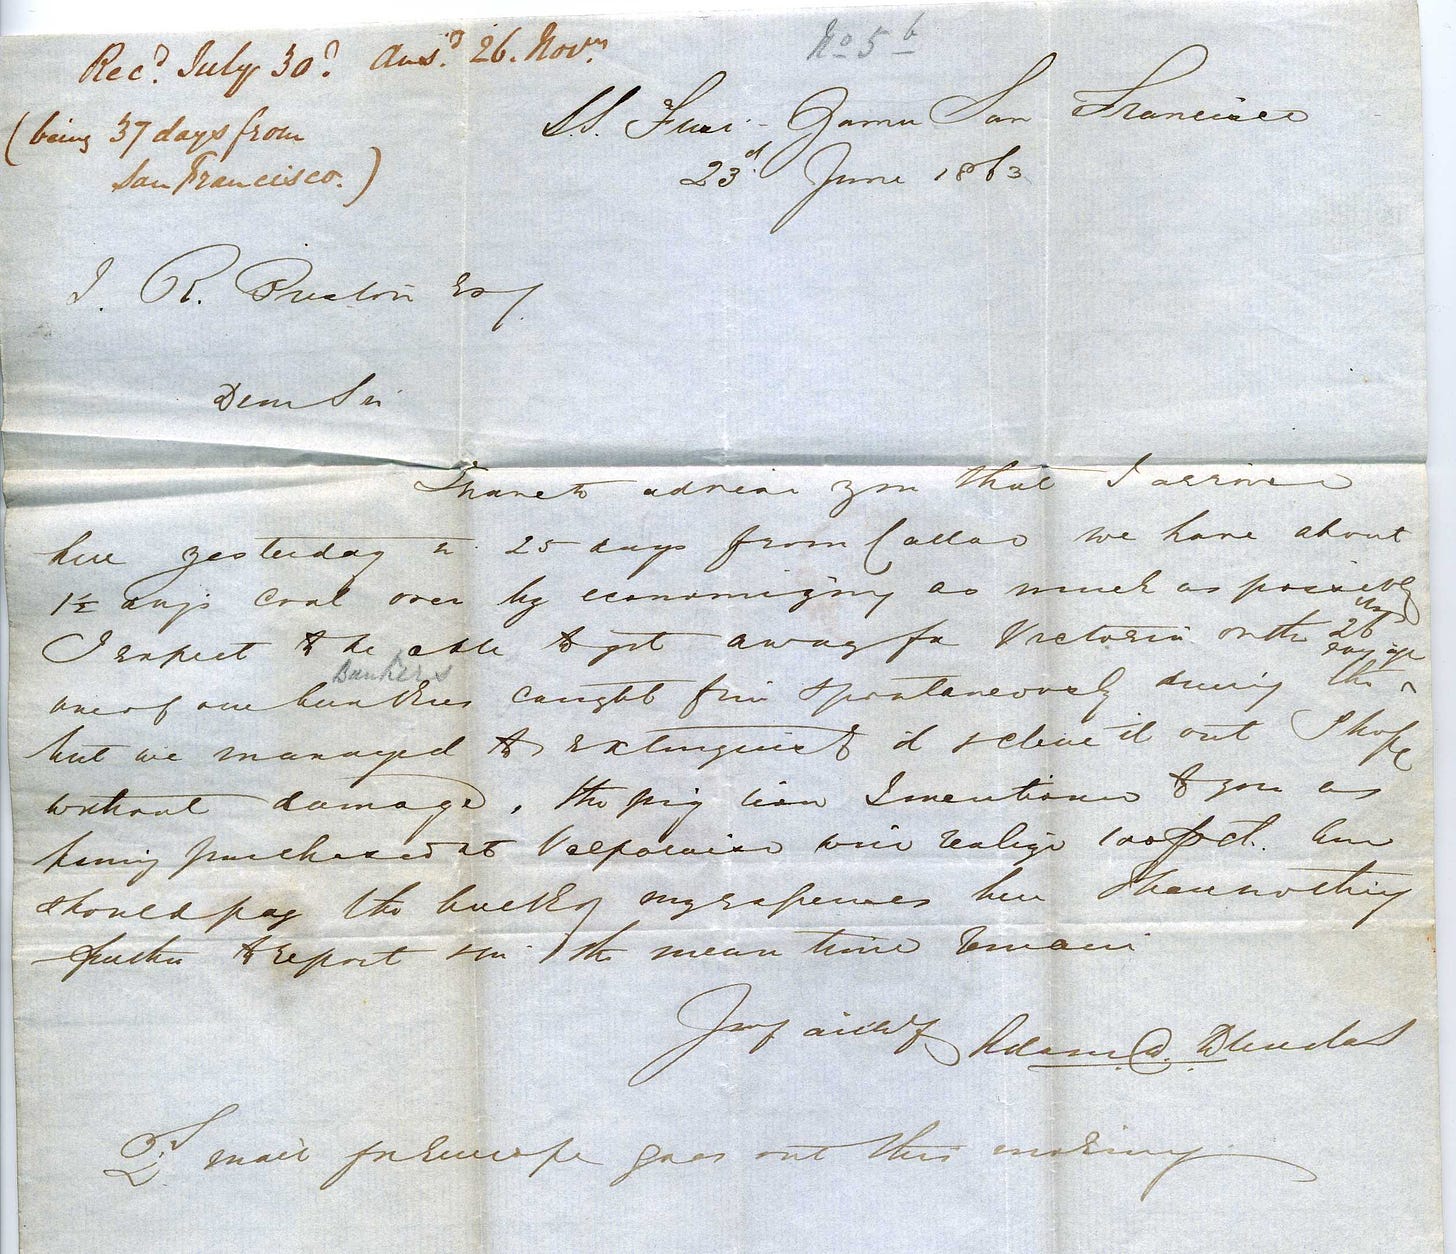 Recd. July 30? Ansd. 26. Novr.
No 5 b
(being 37 days from
San Francisco.)
SS. Fusi-Gama San Francisco
23d June 1863
J. R. Preston Esq
Dear Sir
I have to advise you that I arrived
here yesterday in 25 days from Callao we have about
1½ days coal over by economizing as much as possible
I expect to be able to get away for Victoria on the 26th
Bunkers
one of our bunkers caught fire spontaneously during the voyage
but we managed to extinguish it & clear it out I hope
without damage, the pig iron I mentioned to you as
having purchased at Valparaiso will realize 100 pct. here
should pay the bulk of my expenses here I have nothing
further to report & in the mean time remain
Yours faithfy Adam D. Dundas
PS mail for Europe goes out this morning